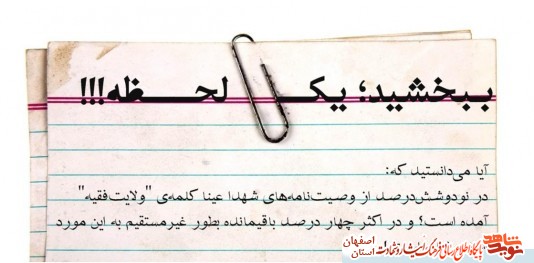 ببخشید، یک لحظه!!!
آیا می‌دانستید که:
در نودوشش‌درصد از وصیت‌نامه‌های شهدا عینا کلمه‌ی "ولایت‌فقیه"
آمده است؛ و در اکثر چهار درصد باقیمانده بطور غیرمستقیم به این مورد
نوید شاهد
پایگاه اطلاع رسانی فرهنگ ایثار و شهادت
اصفهان
استان